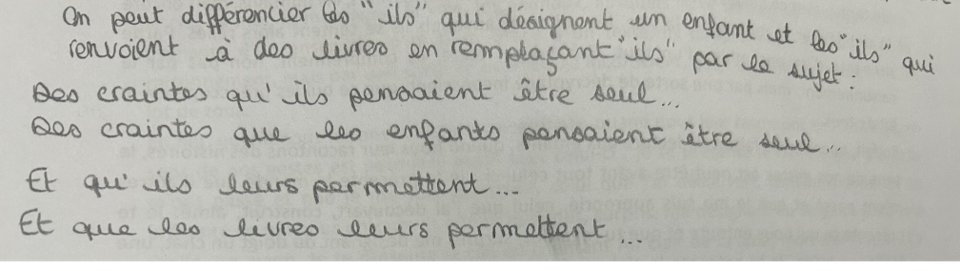 On peut différencier les "ils" qui désignent un enfant et les "ils" qui
renvoient à des livres en remplaçant "ils" par le sujet :
Des craintes qu'ils pensaient être seul...
Des craintes que les enfants pensaient être seul...
Et qu'ils leurs permettent...
Et que les livres leurs permettent...